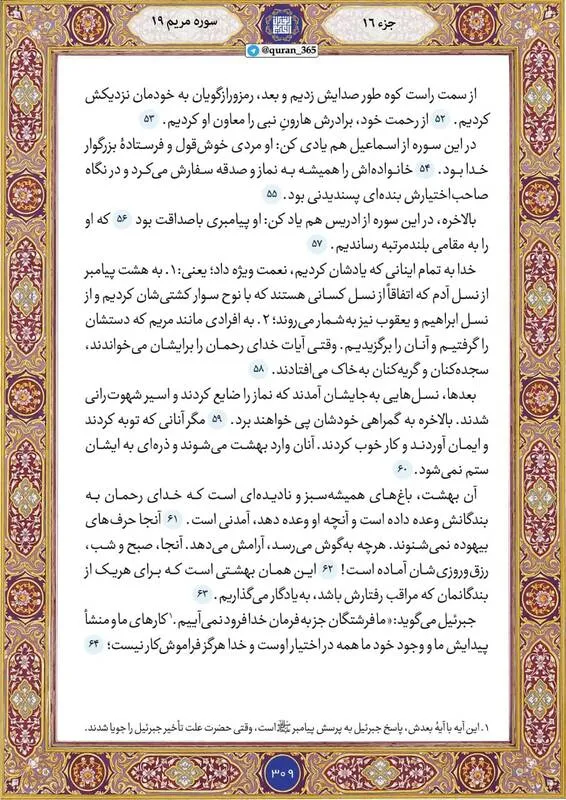 جزء ۱۶
سوره مریم ۱۹
@quran_365
از سمت راست کوه طور صدایش زدیم و بعد، رمزورازگویان به خودمان نزدیکش
کردیم. ۵۲ از رحمت خود، برادرش هارونِ نبی را معاون او کردیم. ۵۳
در این سوره از اسماعیل هم یادی کن: او مردی خوش‌قول و فرستادهٔ بزرگوار
خدا بود. ۵۴ خانواده‌اش را همیشه به نماز و صدقه سفارش می‌کرد و در نگاه
صاحب‌اختیارش بنده‌ای پسندیدنی بود. ۵۵
بالاخره، در این سوره از ادریس هم یاد کن: او پیامبری باصداقت بود ۵۶ که او
را به مقامی بلندمرتبه رساندیم. ۵۷
خدا به تمام اینانی که یادشان کردیم، نعمت ویژه داد؛ یعنی: ۱. به هشت پیامبر
از نسل آدم که اتفاقاً از نسل کسانی هستند که با نوح سوار کشتی‌شان کردیم و از
نسل ابراهیم و یعقوب نیز به‌شمار می‌روند؛ ۲. به افرادی مانند مریم که دستشان
را گرفتیم و آنان را برگزیدیم. وقتی آیات خدای رحمان را برایشان می‌خواندند،
سجده‌کنان و گریه‌کنان به خاک می‌افتادند. ۵۸
بعدها، نسل‌هایی به‌جایشان آمدند که نماز را ضایع کردند و اسیر شهوت‌رانی
شدند. بالاخره به گمراهی خودشان پی خواهند برد. ۵۹ مگر آنانی که توبه کردند
و ایمان آوردند و کار خوب کردند. آنان وارد بهشت می‌شوند و ذره‌ای به ایشان
ستم نمی‌شود. ۶۰
آن بهشت، باغ‌های همیشه‌سبز و نادیده‌ای است که خدای رحمان به
بندگانش وعده داده است و آنچه او وعده دهد، آمدنی است. ۶۱ آنجا حرف‌های
بیهوده نمی‌شنوند. هرچه به‌گوش می‌رسد، آرامش می‌دهد. آنجا، صبح و شب،
رزق‌وروزی‌شان آماده است! ۶۲ این همان بهشتی است که برای هریک از
بندگانمان که مراقب رفتارش باشد، به‌یادگار می‌گذاریم. ۶۳
جبرئیل می‌گوید: «ما فرشتگان جز به فرمان خدا فرود نمی‌آییم.۱ کارهای ما و منشأ
پیدایش ما و وجود خود ما همه در اختیار اوست و خدا هرگز فراموش‌کار نیست؛ ۶۴
۱. این آیه با آیهٔ بعدش، پاسخ جبرئیل به پرسش پیامبر ﷺ است، وقتی حضرت علت تأخیر جبرئیل را جویا شدند.
۳۰۹